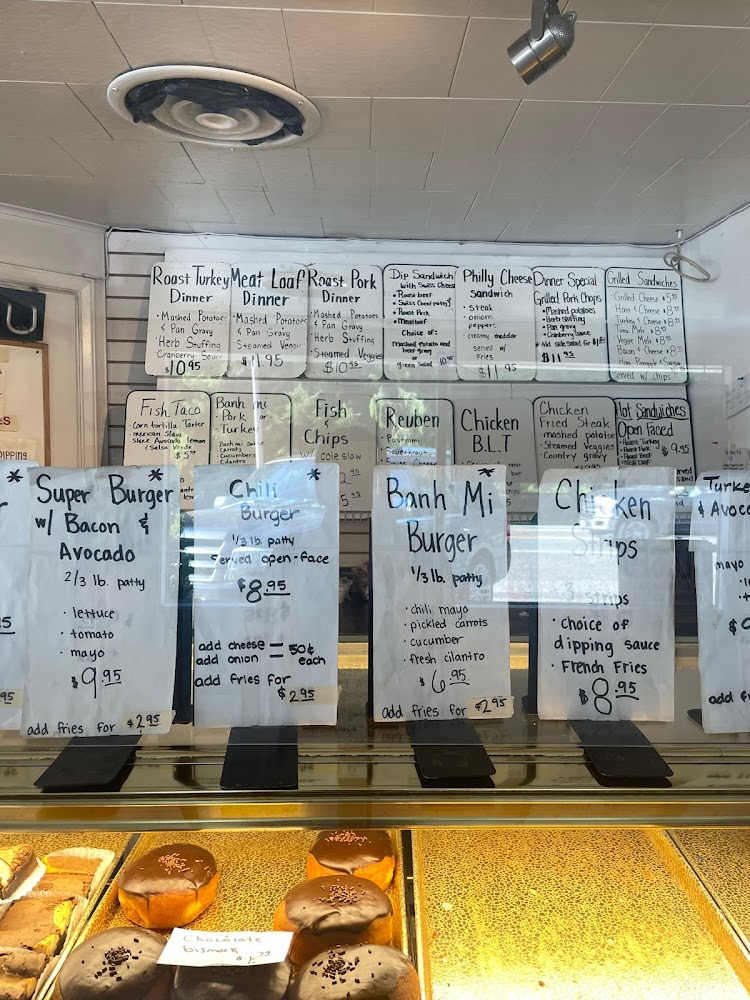 Roast Turkey
Dinner
• Mashed Potatoes
& Pan Gravy
• Herb Stuffing
Cranberry Sauce
$10.95
Meat Loaf
Dinner
• Mashed Potatoes
& Pan Gravy
Steamed
$11.95
Roast Pork
Dinner
• Mashed Potatoes
& Pan Gravy
• Herb Stuffing
• Steamed Veggies
$10.95
Dip Sandwich
with Swiss Cheese
• Roast beef
• Roast Pork
• Meatloaf
Choice of:
Mashed potato and
beef gravy
or
green Salad 10.95
Philly Cheese
Sandwich
• Steak
• onions
peppers
creamy cheddar
served w/
fries
$11.95
Dinner Special
Grilled Pork Chops
• Mashed potatoes
• Herb stuffing
• Pan gravy
• Cranberry Sauce
• Add side salad for
$11.95
Grilled Sandwiches
Grilled Cheese $
Ham & Cheese $8
Turkey & Cheese $8
Tuna Melt $8
Veggie Melt $8
Bacon & Cheese $8
Ham Pineapple & Swiss
Served w/ Chips
DIPPING
Fish Taco
Corn tortilla Tarter
mexican Slaw
Slice Avocado lemon
Salsa Verde
Banh mi
Pork or
Turkey
Banh mi sauce
• carrots
Cucumbers
Cilantro
Fish
&
Chips
W/ cole slaw
Reuben
• Pastrami
• Sauerkraut
Chicken
B.L.T
Chicken
Fried Steak
• mashed potatoes
• Steamed Veggies
• Country gravy
Hot Sandwiches
Open faced
• Roast Turkey
• Roast Pork
• Roast Beef
• Meat Loaf
$9.95
*
Super Burger
w/ Bacon &
Avocado
2/3 lb. patty
• lettuce
• tomato
• mayo
$9.95
add fries for $2.95
*
Chili
Burger
1/3 lb. patty
Served open-face
$8.95
add cheese = 50¢
add onion = each
add fries for
$2.95
*
Banh Mi
Burger
1/3 lb. patty
• chili mayo
pickled carrots
• cucumber
• fresh cilantro
$6.95
add fries for $2.95
Chicken
Strips
3 strips
• choice of
dipping sauce
• French Fries
$8.95
Turkey
& Avoc
mayo
add f
Chocolate
bismark